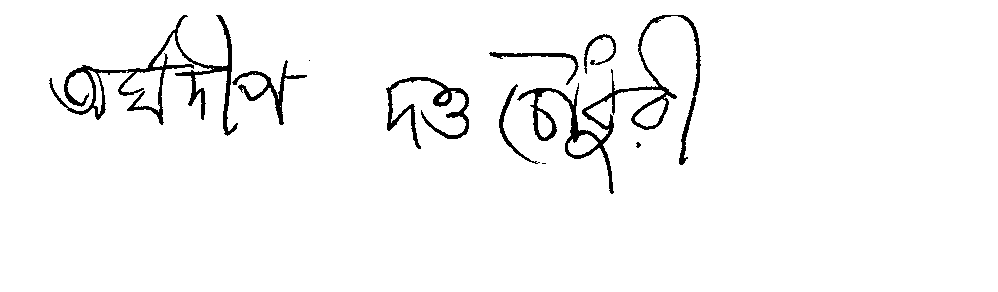 অর্ঘদীপ দত্ত চৌধুরী